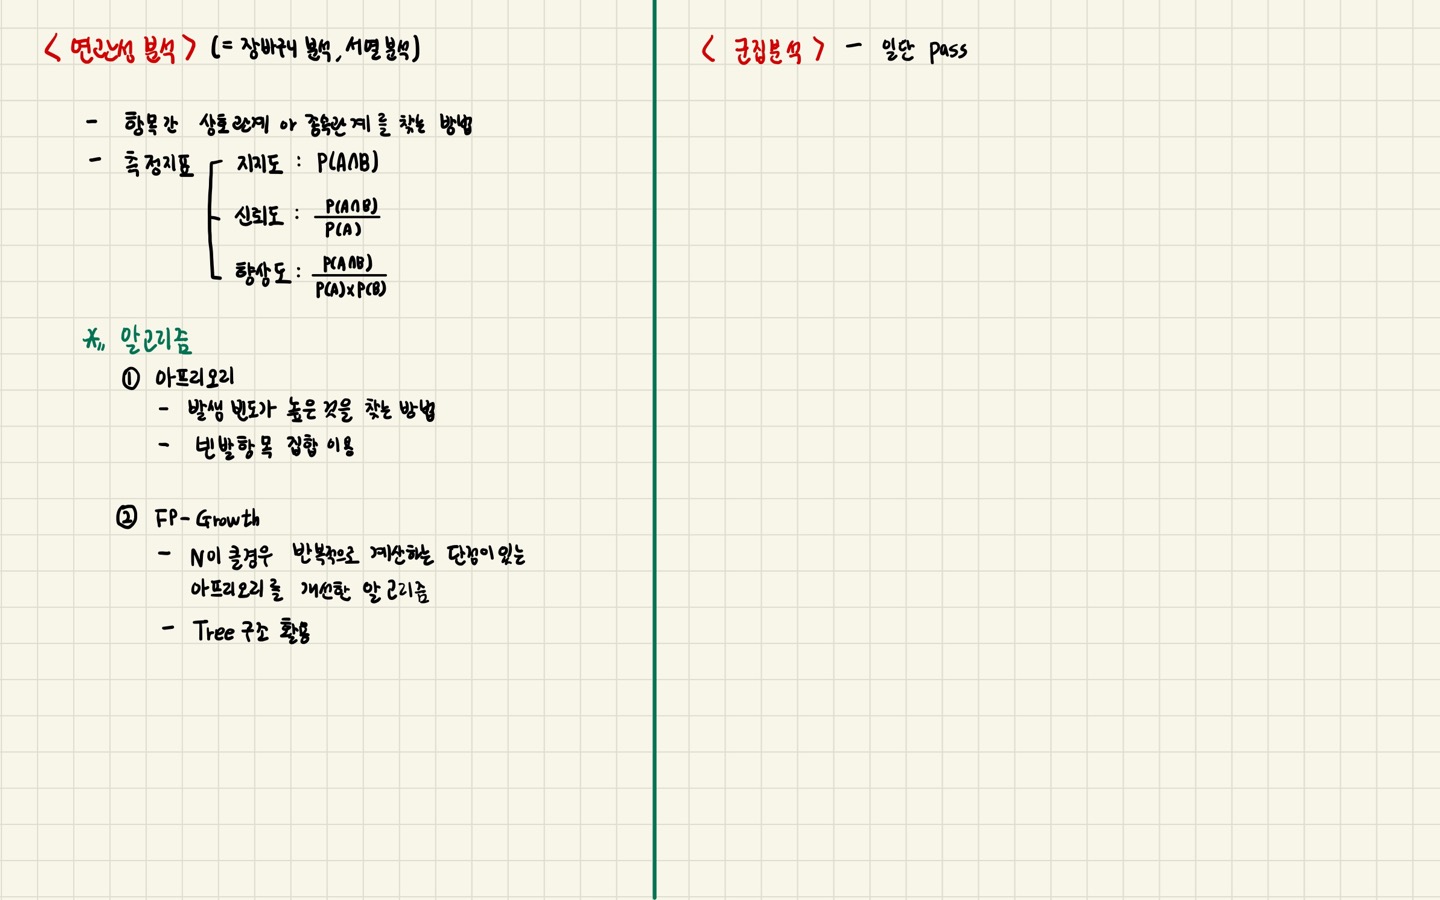 < 연관성 분석 > (= 장바구니 분석, 서열분석)
- 항목간 상호관계 or 종속관계를 찾는 방법
- 측정지표
지지도 : P(A∩B)
신뢰도 : P(A∩B)
P(A)
향상도 : P(A∩B)
P(A)×P(B)
※ 알고리즘
① 아프리오리
- 발생 빈도가 높은 것을 찾는 방법
- 빈발항목 집합 이용
② FP-Growth
- N이 클경우 반복적으로 계산하는 단점이 있는
아프리오리를 개선한 알고리즘
- Tree 구조 활용
< 군집분석 > - 일단 pass